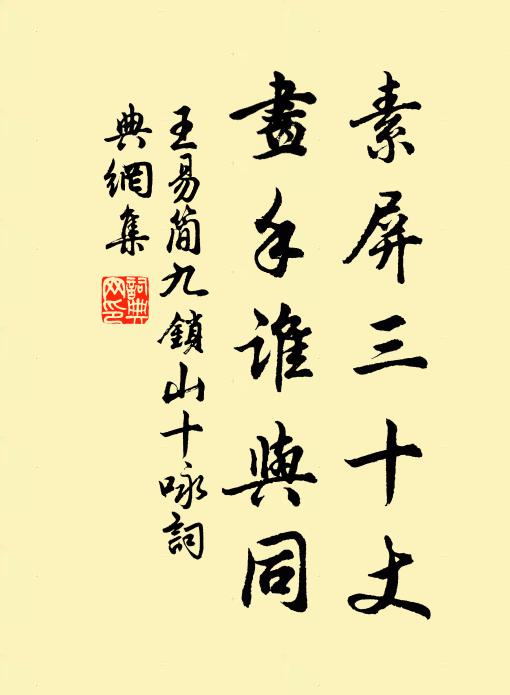 素屏三十丈
畫手誰與同
王易簡九鎖山十咏詞
典網集
詞典網印